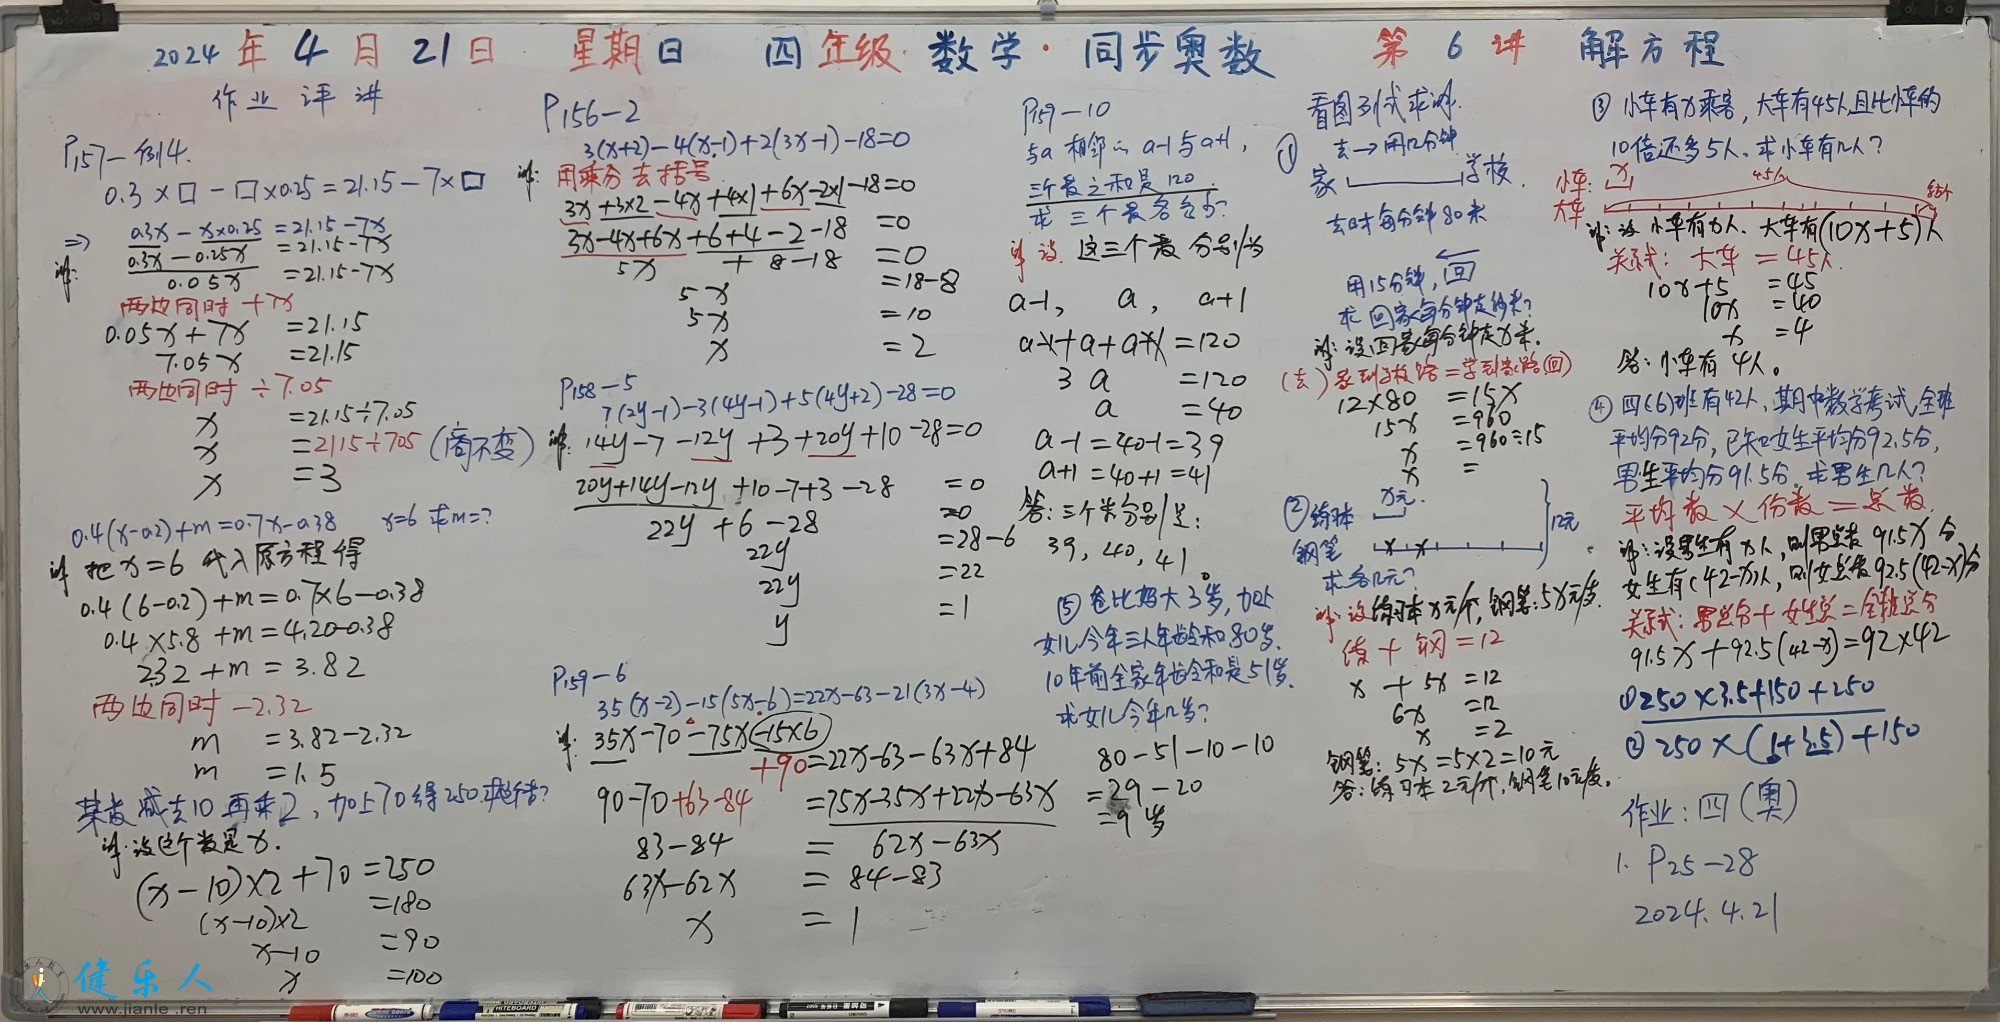 2024年4月21日 星期日 四年级·数学·同步奥数 第6讲 解方程
作业评讲
P157-例4.
0.3×□-□×0.25=21.15-7×□
⇒ 0.3x-x×0.25=21.15-7x
解: 0.3x-0.25x=21.15-7x
0.05x=21.15-7x
两边同时+7x
0.05x+7x=21.15
7.05x=21.15
两边同时÷7.05
x=21.15÷7.05
x=2115÷705(商不变)
x=3
0.4(x-0.2)+m=0.7x-0.38 x=6 求m=?
解 把x=6代入原方程得
0.4(6-0.2)+m=0.7×6-0.38
0.4×5.8+m=4.20-0.38
2.32+m=3.82
两边同时-2.32
m=3.82-2.32
m=1.5
某数减去10再乘2,加上70得250求
解:设这个数是x.
(x-10)×2+70=250
(x-10)×2=180
x-10=90
x=100
P156-2
3(x+2)-4(x-1)+2(3x-1)-18=0
解: 用乘分去括号
3x+3×2-4x+4×1+6x-2×1-18=0
3x-4x+6x+6+4-2-18=0
5x+8-18=0
5x=18-8
5x=10
x=2
P158-5
7(2y-1)-3(4y-1)+5(4y+2)-28=0
解: 14y-7-12y+3+20y+10-28=0
20y+14y-12y+10-7+3-28=0
22y+6-28=0
22y=28-6
22y=22
y=1
P159-6
35(x-2)-15(5x-6)=22x-63-21(3x-4)
解: 35x-70-75x-15×6
+90=22x-63-63x+84
90-70+63-84=75x-35x+22x-63x
83-84=62x-63x
63x-62x=84-83
x=1
P159-10
与a相邻 a-1与a+1,
三个数之和是120
求三个数各多少?
解 设这三个数分别为
a-1, a, a+1
a-1+a+a+1=120
3a=120
a=40
a-1=40-1=39
a+1=40+1=41
答:三个数分别是:
39,40,41。
⑤爸比妈大3岁,加上
女儿今年三人年龄和80岁.
10年前全家年龄和是51岁.
求女儿今年几岁?
80-51-10-10
=29-20
=9岁
看图列式求解.
① 去→用12分钟
家 学校.
去时每分钟80米
← 用15分钟,回
求回家每分钟走的米?
解:设回家每分钟走x米.
(去)家到学校路=学到家路(回)
12×80=15x
15x=960
x=960÷15
x=
② 练本 x元.
钢笔 12元
求各几元?
解:设练习本x元/个,钢笔:5x元/支.
练+钢=12
x+5x=12
6x=12
x=2
钢笔:5x=5×2=10元
答:练习本2元/个,钢笔10元/支.
③小车有x乘客,大车有45人且比小车的
10倍还多5人.求小车有几人?
小车: x 45人
大车
解:设小车有x人.大车有(10x+5)人
关系式:大车=45人
10x+5=45
10x=40
x=4
答:小车有4人。
④四(6)班有42人,期中数学考试,全班
平均分92分,已知女生平均分92.5分,
男生平均分91.5分.求男生几人?
平均数×份数=总数.
解:设男生有x人,则男总数91.5x分
女生有(42-x)人,则女总数92.5(42-x)分
关系式:男总分+女生总=全班总分
91.5x+92.5(42-x)=92×42
①250×3.5+150+250
②250×(1+3.5)+150
作业:四(奥)
1. P25-28
2024.4.21
健乐人
www.jianle.ren